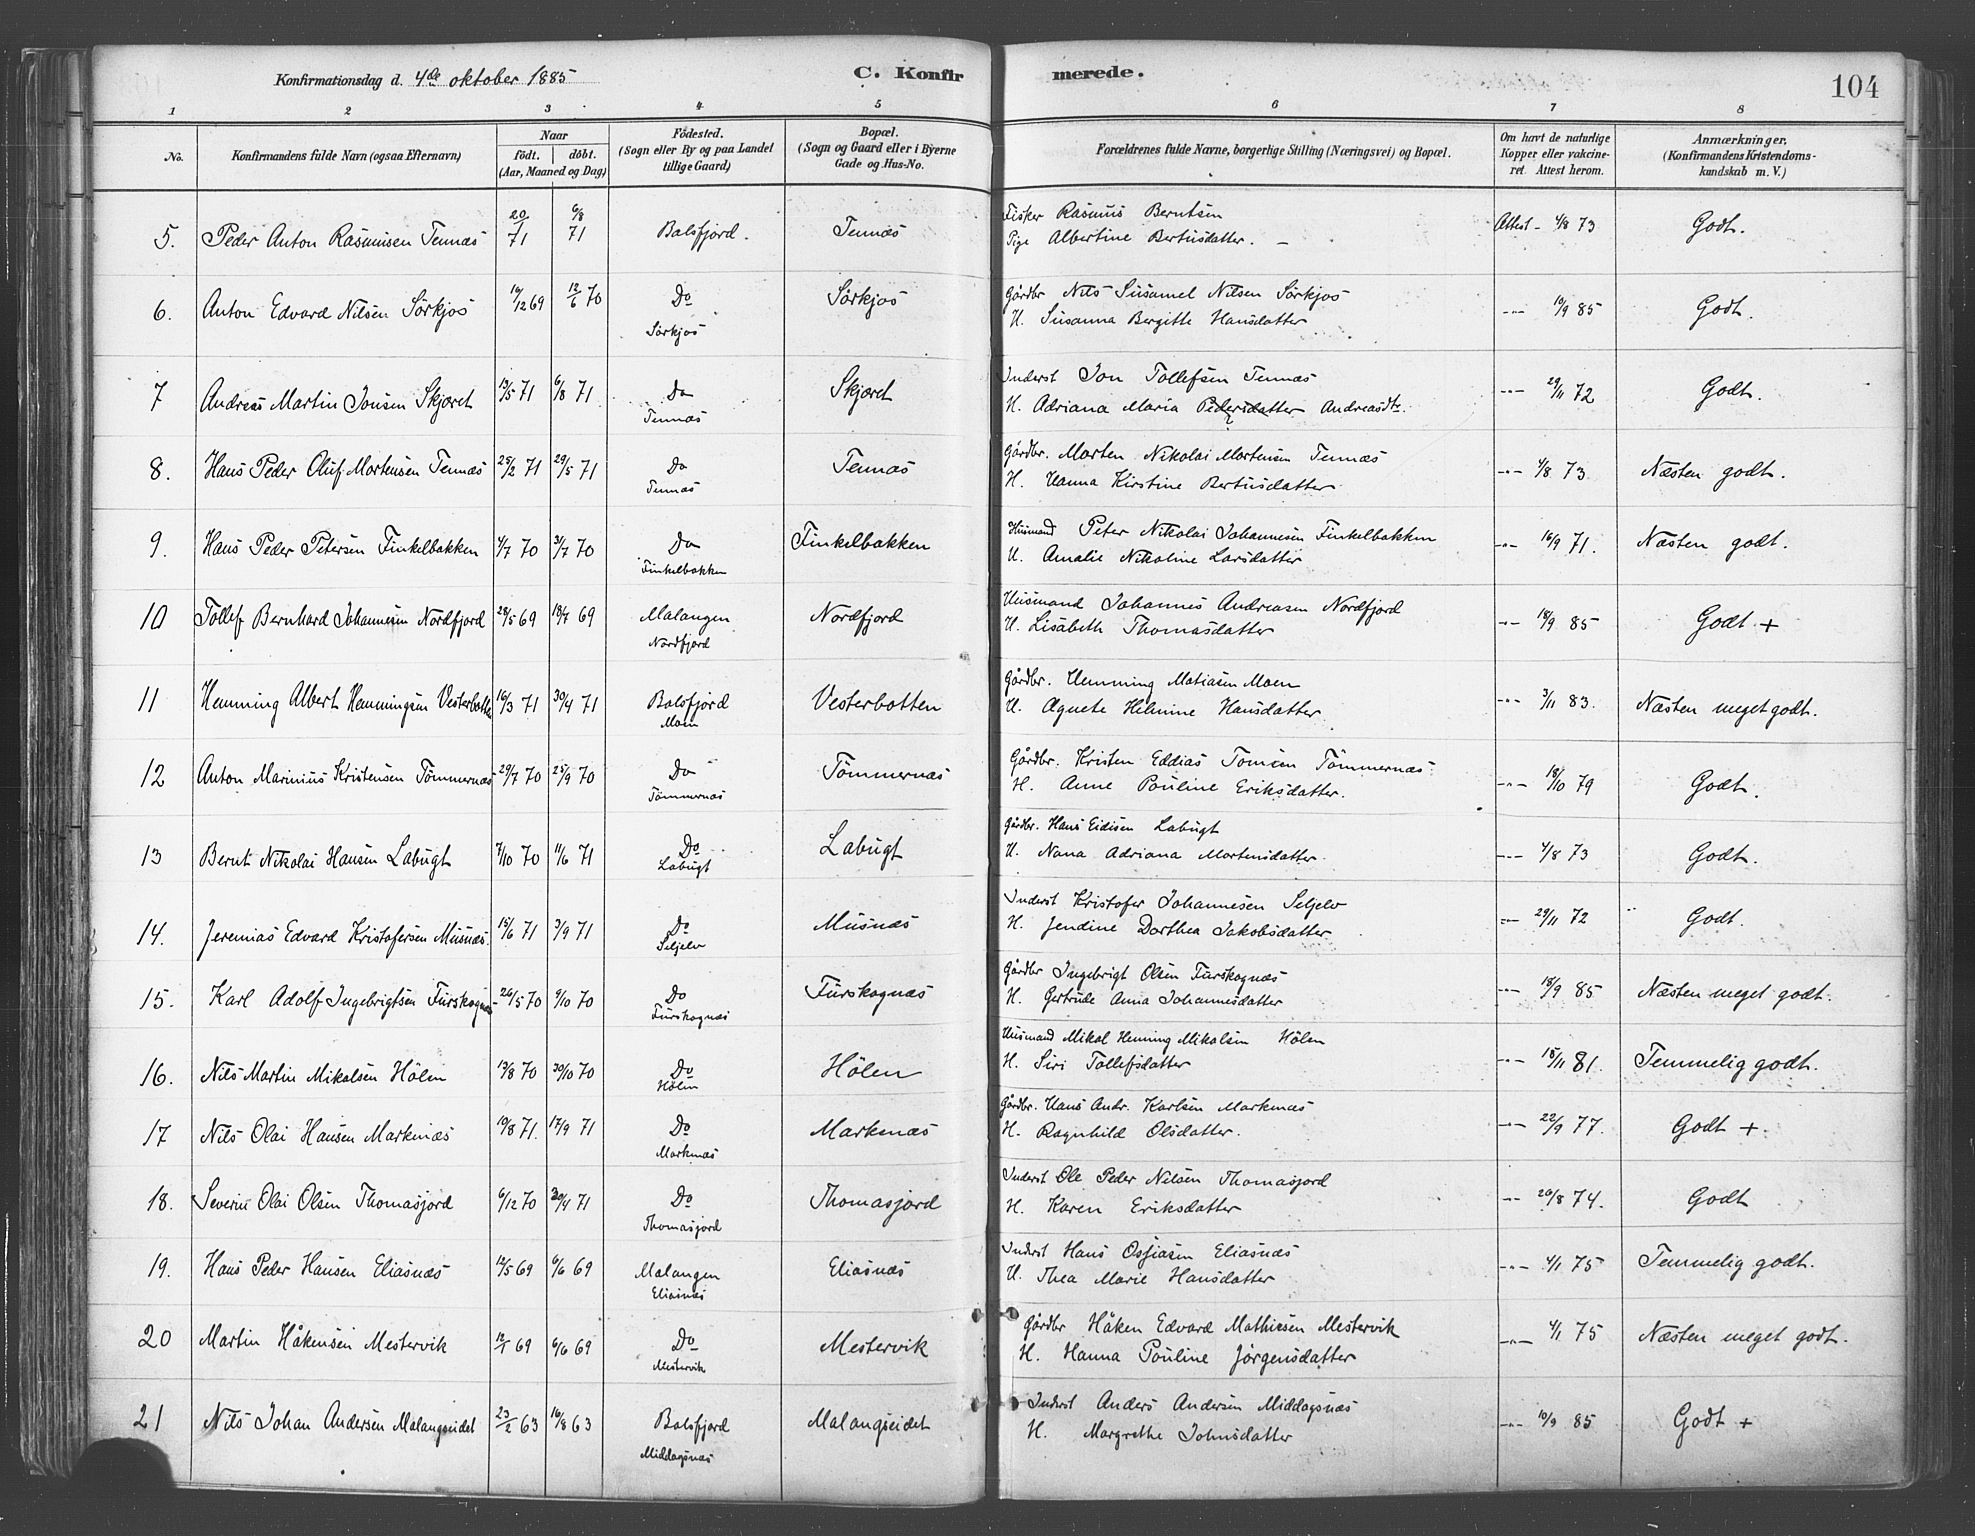 Konfirmationsdag d. 4de oktober 1885
C. Konfirmerede.
104
1 2 3 4 5 6 7 8
No.
Konfirmandens fulde Navn (ogsaa Efternavn)
Naar
født. døbt.
(Aar, Maaned og Dag)
Fødested.
(Sogn eller By og paa Landet
tillige Gaard)
Bopæl.
(Sogn og Gaard eller i Byerne
Gade og Hus-No.
Forældrenes fulde Navne, borgerlige Stilling (Næringsvei) og Bopæl.
Om havt de naturlige
Kopper eller vakcine-
ret. Attest herom.
Anmærkninger.
(Konfirmandens Kristendoms-
kundskab m. V.)
5. Peder Anton Rasmusen Tennæs 20/1 71 6/8 71 Balsfjord. Tennæs
Fisker Rasmus Berntsen
Pige Albertine Bertusdatter. Attest 4/8 73 Godt.
6. Anton Edvard Nilsen Sørkjos 16/12 69 12/6 70 Do Sørkjos
Sørkjos
Gårdbr Nils Susamel Nilsen Sørkjos
H. Susanna Bergitte Hansdatter -"- 10/9 85 Godt.
7 Andreas Martin Jonsen Skjæret 13/5 71 6/8 71 Do Skjæret
Tennæs
Inderst Jon Tollefsen Tennæs
H. Adriana Maria Pedersdatter Andreasdtr. -"- 29/11 72 Godt.
8. Hans Peder Oluf Mortensen Tennæs 25/2 71 29/5 71 Do Tennæs
Tennæs
Gårdbr. Morten Nikolai Mortensen Tennæs
H. Hanna Kirstine Bertusdatter -"- 4/8 73 Næsten godt.
9. Hans Peder Petersen Finkelbakken 4/7 70 31/7 70 Do Finkelbakken
Finkelbakken
Husmand Peter Nikolai Johannesen Finkelbakken
H. Amalie Nikoline Larsdatter -"- 16/9 71. Næsten godt.
10 Tollef Bernhard Johannesen Nordfjord 28/5 69 18/7 69 Malangen Nordfjord
Nordfjord
Husmand Johannes Andreasen Nordfjord
H. Lisabeth Thomasdatter -"- 18/9 85 Godt +
11 Hemming Albert Hemmingsen Vesterbotten 16/3 71 30/4 71 Balsfjord Vesterbotten
Moen
Gårdbr. Hemming Matiasen Moen
H. Agnete Helmine Hansdatter -"- 3/11 83. Næsten meget godt.
12 Anton Marinius Kristensen Tømmernæs 29/7 70 25/9 70 Do Tømmernæs
Tømmernæs
Gårdbr. Kristen Eddias Tomsen Tømmernæs
H. Anne Pouline Eriksdatter. -"- 18/10 79 Godt.
13 Bernt Nikolai Hansen Labugt 7/10 70 11/6 71 Do Labugt
Labugt
Gårdbr. Hans Eidisen Labugt
H. Nana Adriana Mortensdatter. -"- 4/8 73 Godt.
14. Jeremias Edvard Kristofersen Musnæs. 15/6 71 3/9 71 Do Musnæs
Seljelv
Inderst Kristofer Johannesen Seljelv
H. Jendine Dorthea Jakobsdatter -"- 29/11 72 Godt.
15. Karl Adolf Ingebrigtsen Furskognæs 26/5 70 9/10 70 Do Furskognæs
Furskognæs
Gårdbr Ingebrigt Olsen Furskognæs
H. Gertrude Anna Johannesdatter -"- 18/9 85 Næsten meget godt.
16. Nils Martin Mikalsen Hølen 13/8 70 30/10 70 Do Hølen
Hølen
Husmand Mikal Henning Mikalsen Hølen
H. Siri Tollefsdatter -"- 18/11 81. Temmelig godt.
17 Nils Olai Hansen Markenæs 19/8 71. 17/9 71 Do Markenæs
Markenæs
Gårdbr. Hans Andr. Karlsen Markenæs
H. Ragnhild Olsdatter. -"- 22/9 77. Godt +.
18. Severin Olai Olsen Thomasjord 6/12 70 30/4 71 Do Thomasjord
Thomasjord
Inderst Ole Peder Nilsen Thomasjord
H. Karen Eriksdatter -"- 26/8 74. Godt
19. Hans Peder Hansen Eliasnæs 12/5 69 6/6 69 Malangen Eliasnæs
Eliasnæs
Inderst Hans Ossiasen Eliasnæs
H. Thea Marie Hansdatter -"- 4/1 75 Temmelig godt.
20 Martin Håkensen Mestervik 12/5 69 6/6 69 Do Mestervik
Mestervik
Gårdbr Håken Edvard Mathisen Mestervik
H. Hanna Pouline Jørgensdatter -"- 4/1 75 Næsten meget godt.
21 Nils Johan Andersen Malangseidet 23/2 63 16/8 63 Balsfjord Malangseidet
Middagsnæs
Inderst Anders Andersen Middagsnæs
H. Margrethe Johnsdatter -"- 10/9 85 Godt +